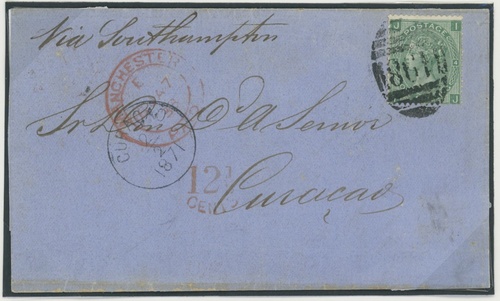 Via Southampton
POSTAGE
J I
I J
MANCHESTER
CURACAO
1871
Sr. Dn. D. A. Senior
12½
CENT
Curaçao